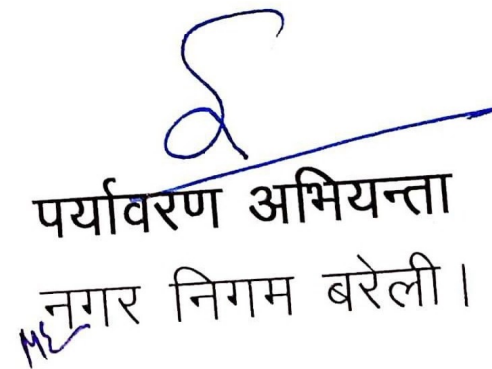 पर्यावरण अभियन्ता
नगर निगम बरेली।